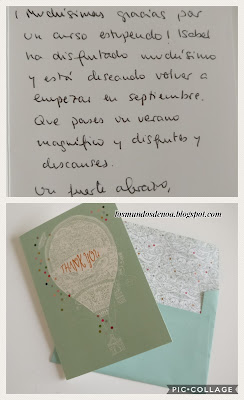 ¡ Muchísimas gracias por
un curso estupendo! Isabel
ha disfrutado muchísimo
y está deseando volver a
empezar en septiembre.
Que pases un verano
magnífico y disfrutes y
descanses.
Un fuerte abrazo,
losmundosdenoa.blogspot.com
THANK YOU
PIC•COLLAGE